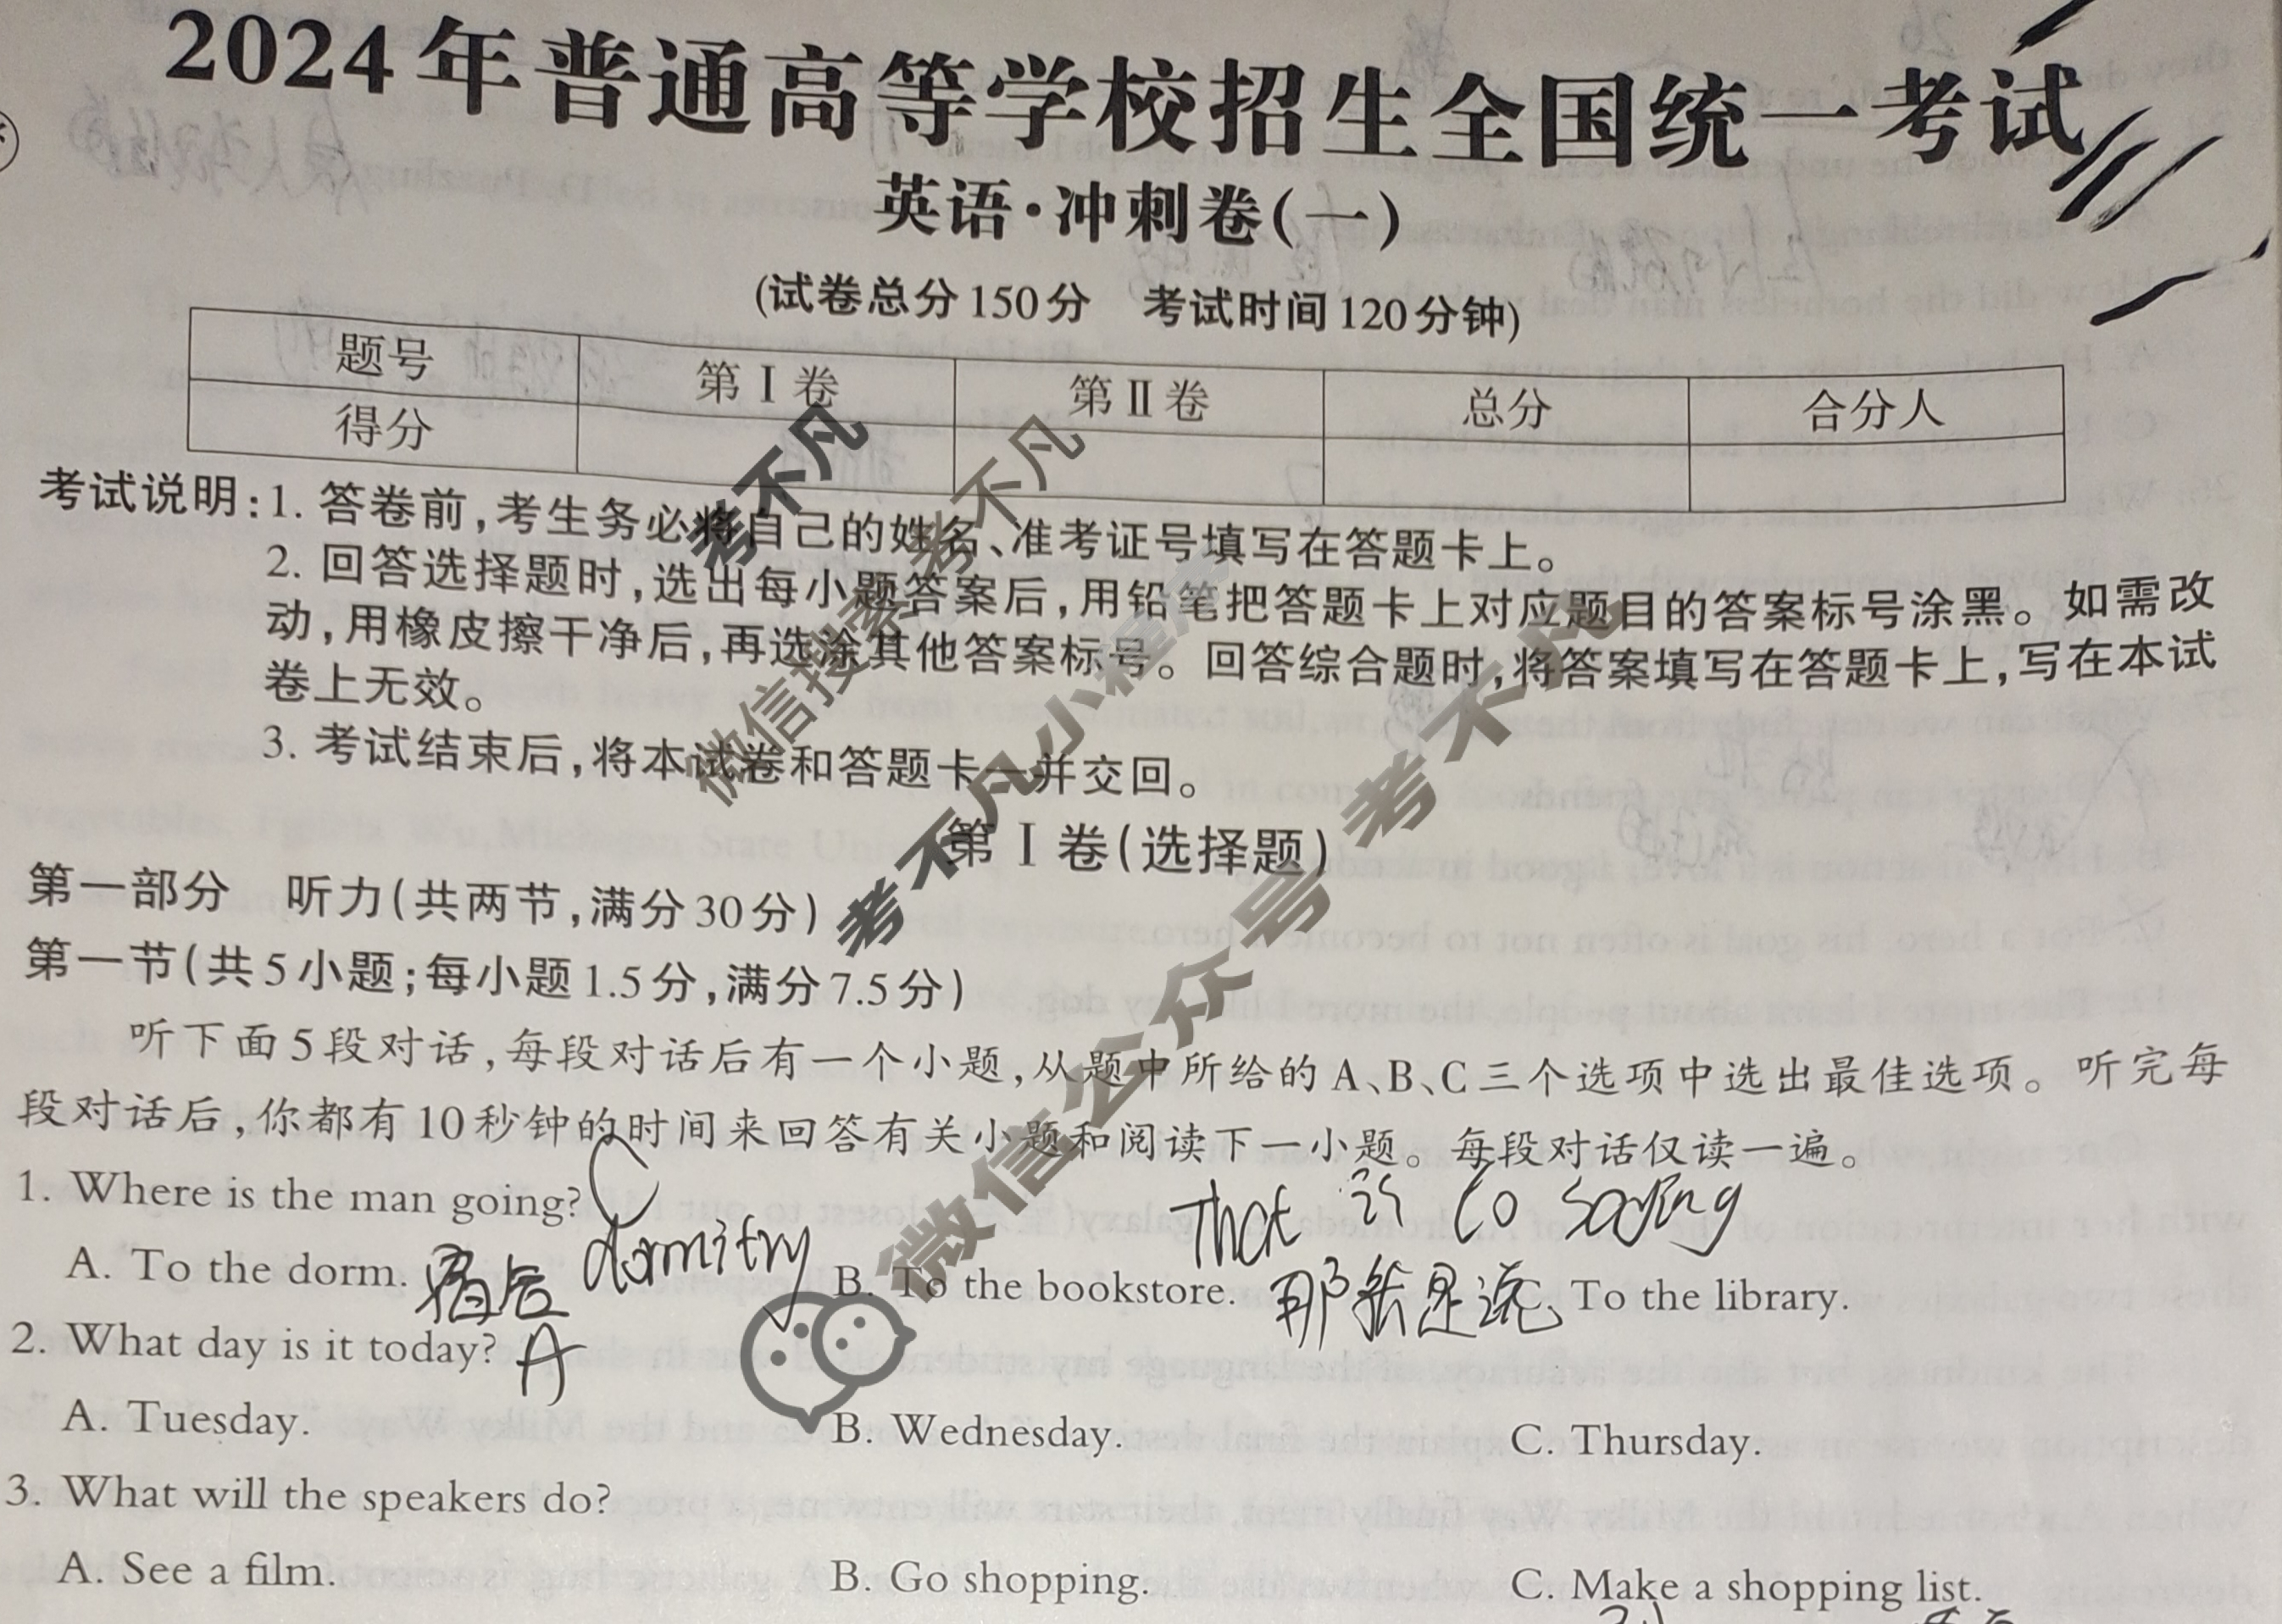 2024年普通高等学校招生全国统一考试
英语·冲刺卷(一)
(试卷总分150分 考试时间120分钟)
题号 第Ⅰ卷 第Ⅱ卷 总分 合分人
得分
考试说明:1. 答卷前,考生务必将自己的姓名、准考证号填写在答题卡上。
2. 回答选择题时,选出每小题答案后,用铅笔把答题卡上对应题目的答案标号涂黑。如需改
动,用橡皮擦干净后,再选涂其他答案标号。回答综合题时,将答案填写在答题卡上,写在本试
卷上无效。
3. 考试结束后,将本试卷和答题卡一并交回。
考不凡
考不凡
微信搜索
考不凡小程序
微信公众号 考不凡
第Ⅰ卷(选择题)
第一部分 听力(共两节,满分30分)
第一节(共5小题;每小题1.5分,满分7.5分)
听下面5段对话,每段对话后有一个小题,从题中所给的A、B、C三个选项中选出最佳选项。听完每
段对话后,你都有10秒钟的时间来回答有关小题和阅读下一小题。每段对话仅读一遍。
1. Where is the man going? C
That is to saying
A. To the dorm. 宿舍 dormitry B. To the bookstore. 那就是说 C. To the library.
2. What day is it today? A
A. Tuesday. B. Wednesday. C. Thursday.
3. What will the speakers do?
A. See a film. B. Go shopping. C. Make a shopping list.